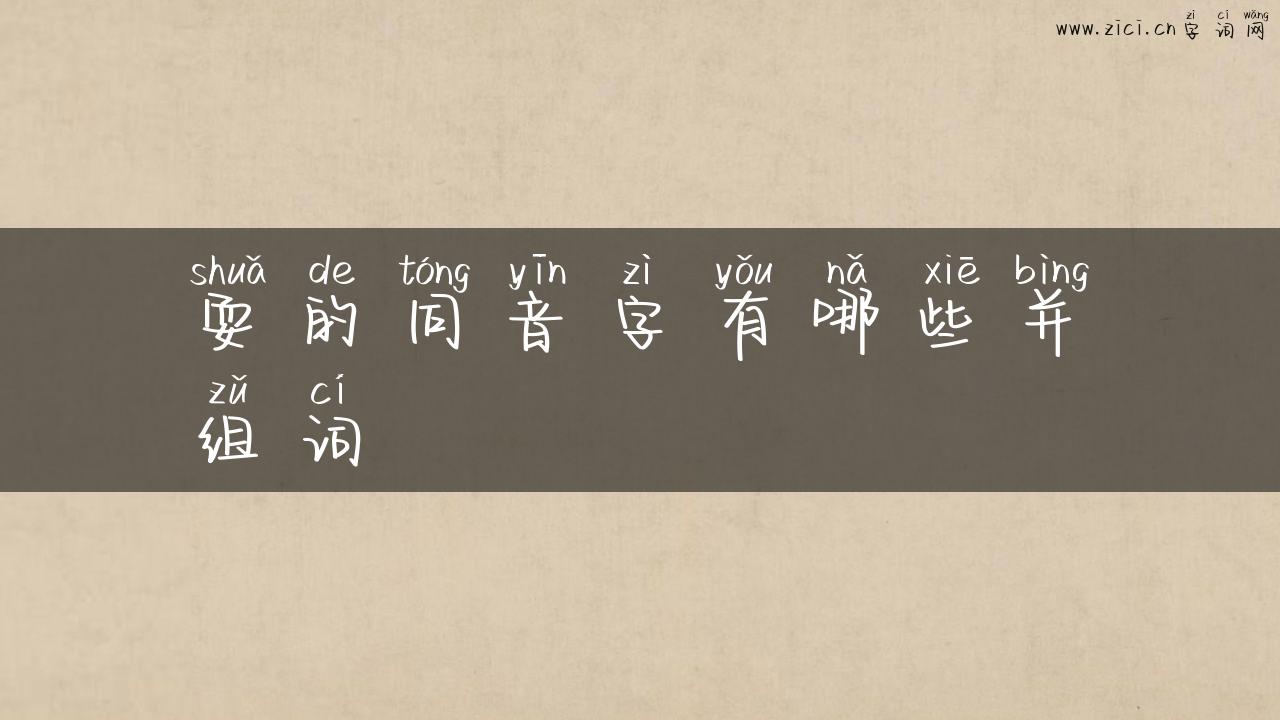 zì cí wǎng
www.zici.cn字词网
shuǎ de tóng yīn zì yǒu nǎ xiē bìng
耍的同音字有哪些并
zǔ cí
组词